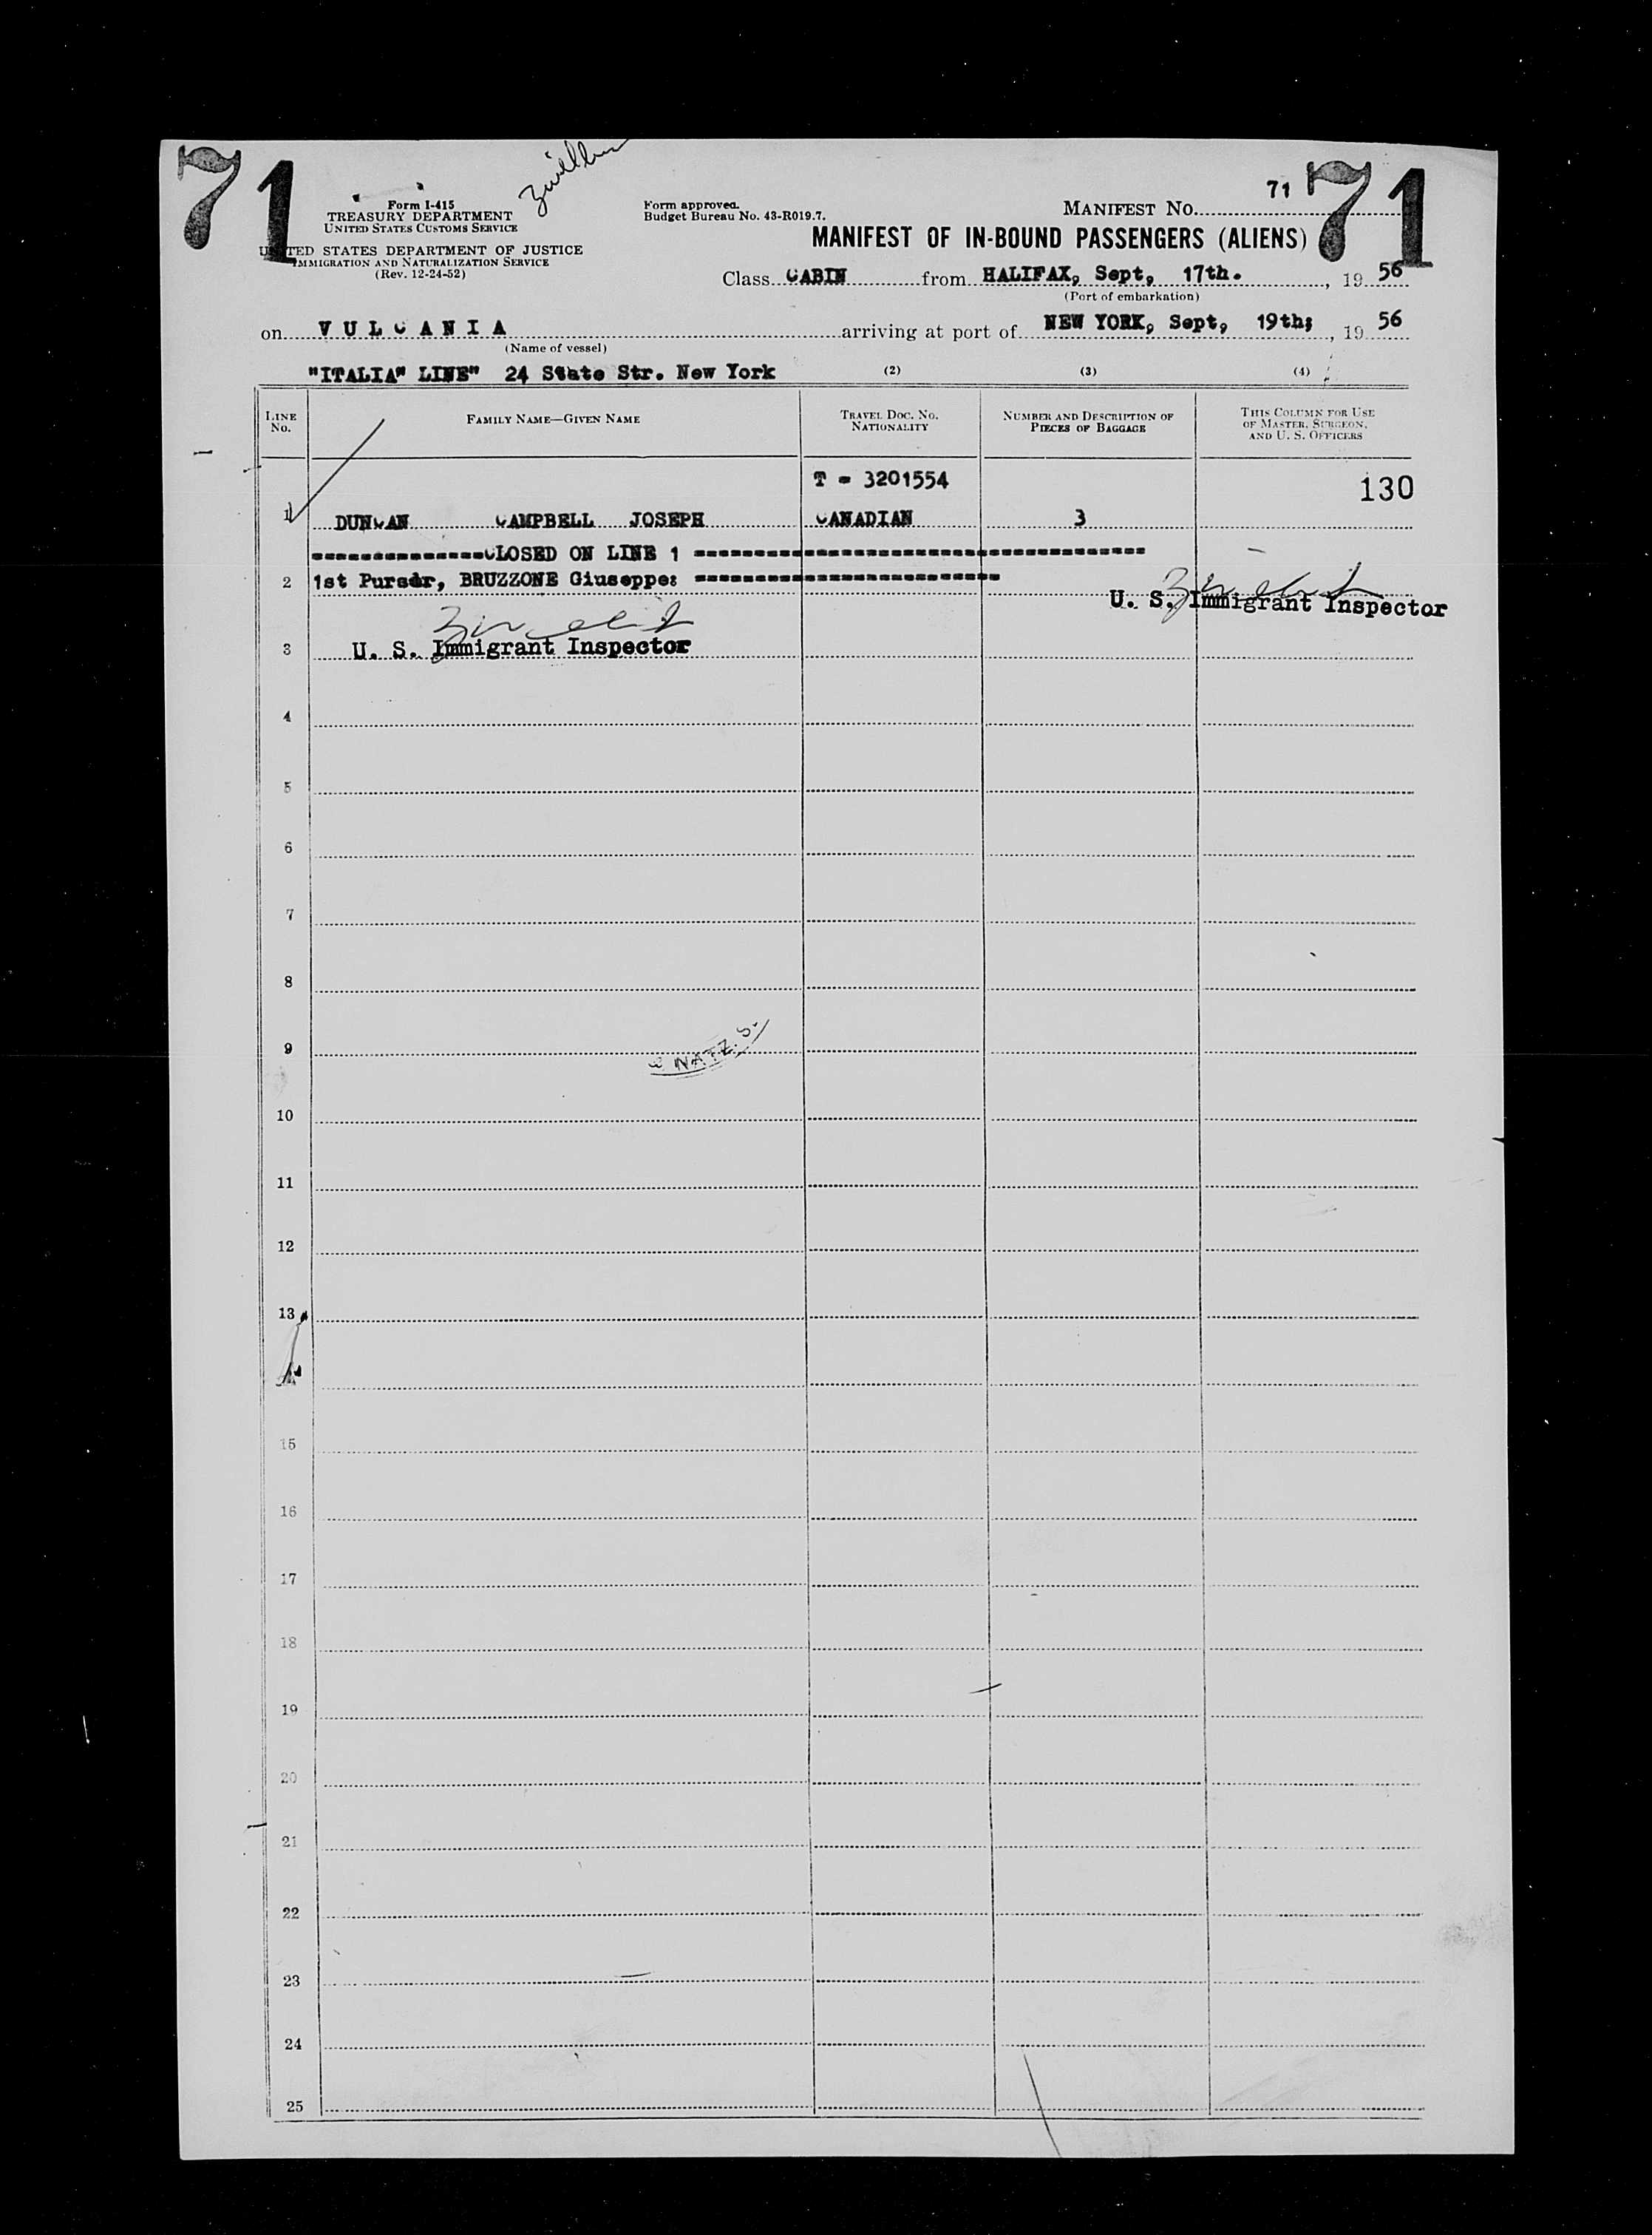 71
71
Form I-415
TREASURY DEPARTMENT
UNITED STATES CUSTOMS SERVICE
UNITED STATES DEPARTMENT OF JUSTICE
IMMIGRATION AND NATURALIZATION SERVICE
(Rev. 12-24-52)
Form approved.
Budget Bureau No. 43-R019.7.
MANIFEST NO. 71
MANIFEST OF IN-BOUND PASSENGERS (ALIENS)
Class CABIN from HALIFAX, Sept, 17th. , 19 56
(Port of embarkation)
on V U L C A N I A arriving at port of NEW YORK, Sept, 19th; , 19 56
(Name of vessel)
"ITALIA" LINE" 24 State Str. New York (2) (3) (4)
LINE No. FAMILY NAME—GIVEN NAME TRAVEL DOC. NO. NATIONALITY NUMBER AND DESCRIPTION OF PIECES OF BAGGAGE THIS COLUMN FOR USE OF MASTER, SURGEON, AND U. S. OFFICERS
T - 3201554 130
1 DUNCAN CAMPBELL JOSEPH CANADIAN 3
CLOSED ON LINE 1
2 1st Purser, BRUZZONE Giuseppe:
U. S. Immigrant Inspector
3 U. S. Immigrant Inspector
4
5
6
7
8
9
NATZ. S.
10
11
12
13
15
16
17
18
19
20
21
22
23
24
25